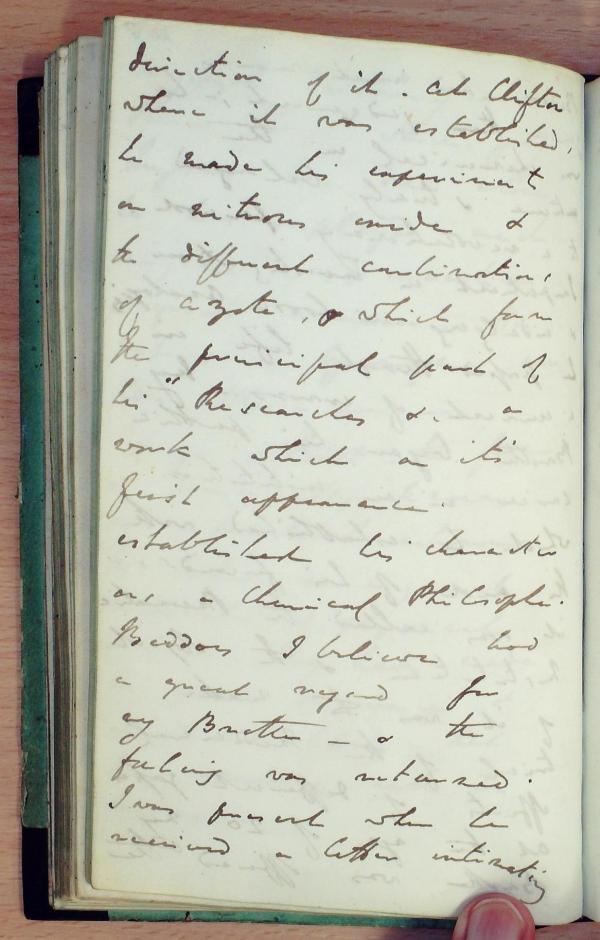 direction of it. At Clifton
where it was established,
he made his experiments
on nitrous oxide &
the different combinations
of azote, & which form
the principal part of
his "Researches &. a
work which on it's
first appearance
established his character
as, a Chemical Philosopher.
Beddoes I believe had
a great regard for
my Brother - & the
feeling was returned.
I was present when he
received a letter intimating